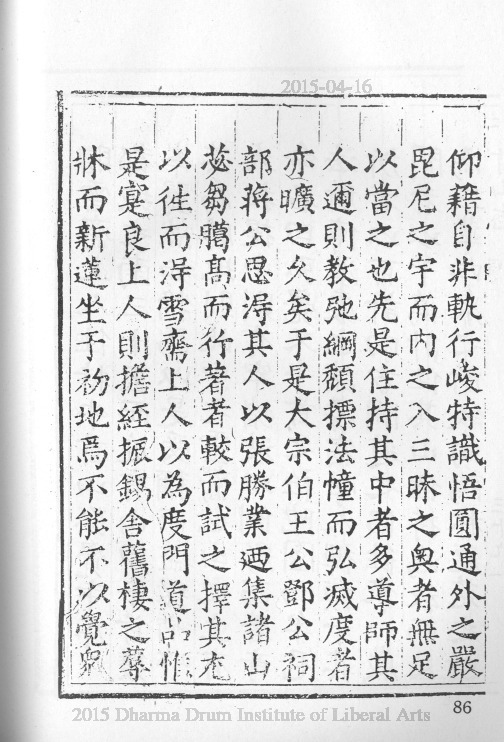 2015-04-16
仰籍自非軌行峻特識悟圓通外之嚴
毘尼之宇而內之入三昧之奧者無足
以當之也先是住持其中者多導師其
人邇則教弛綱頹摽法幢而弘滅度者
亦曠之久矣于是大宗伯王公鄧公祠
部蔣公思淂其人以張勝業迺集諸山
苾芻臈髙而行著者較而試之擇其尤
以徃而淂雪齋上人以為度門道品惟
是寔良上人則擔經振錫舍舊棲之蓐
牀而新蓮坐于初地焉不能不以覺衆
86
2015 Dharma Drum Institute of Liberal Arts